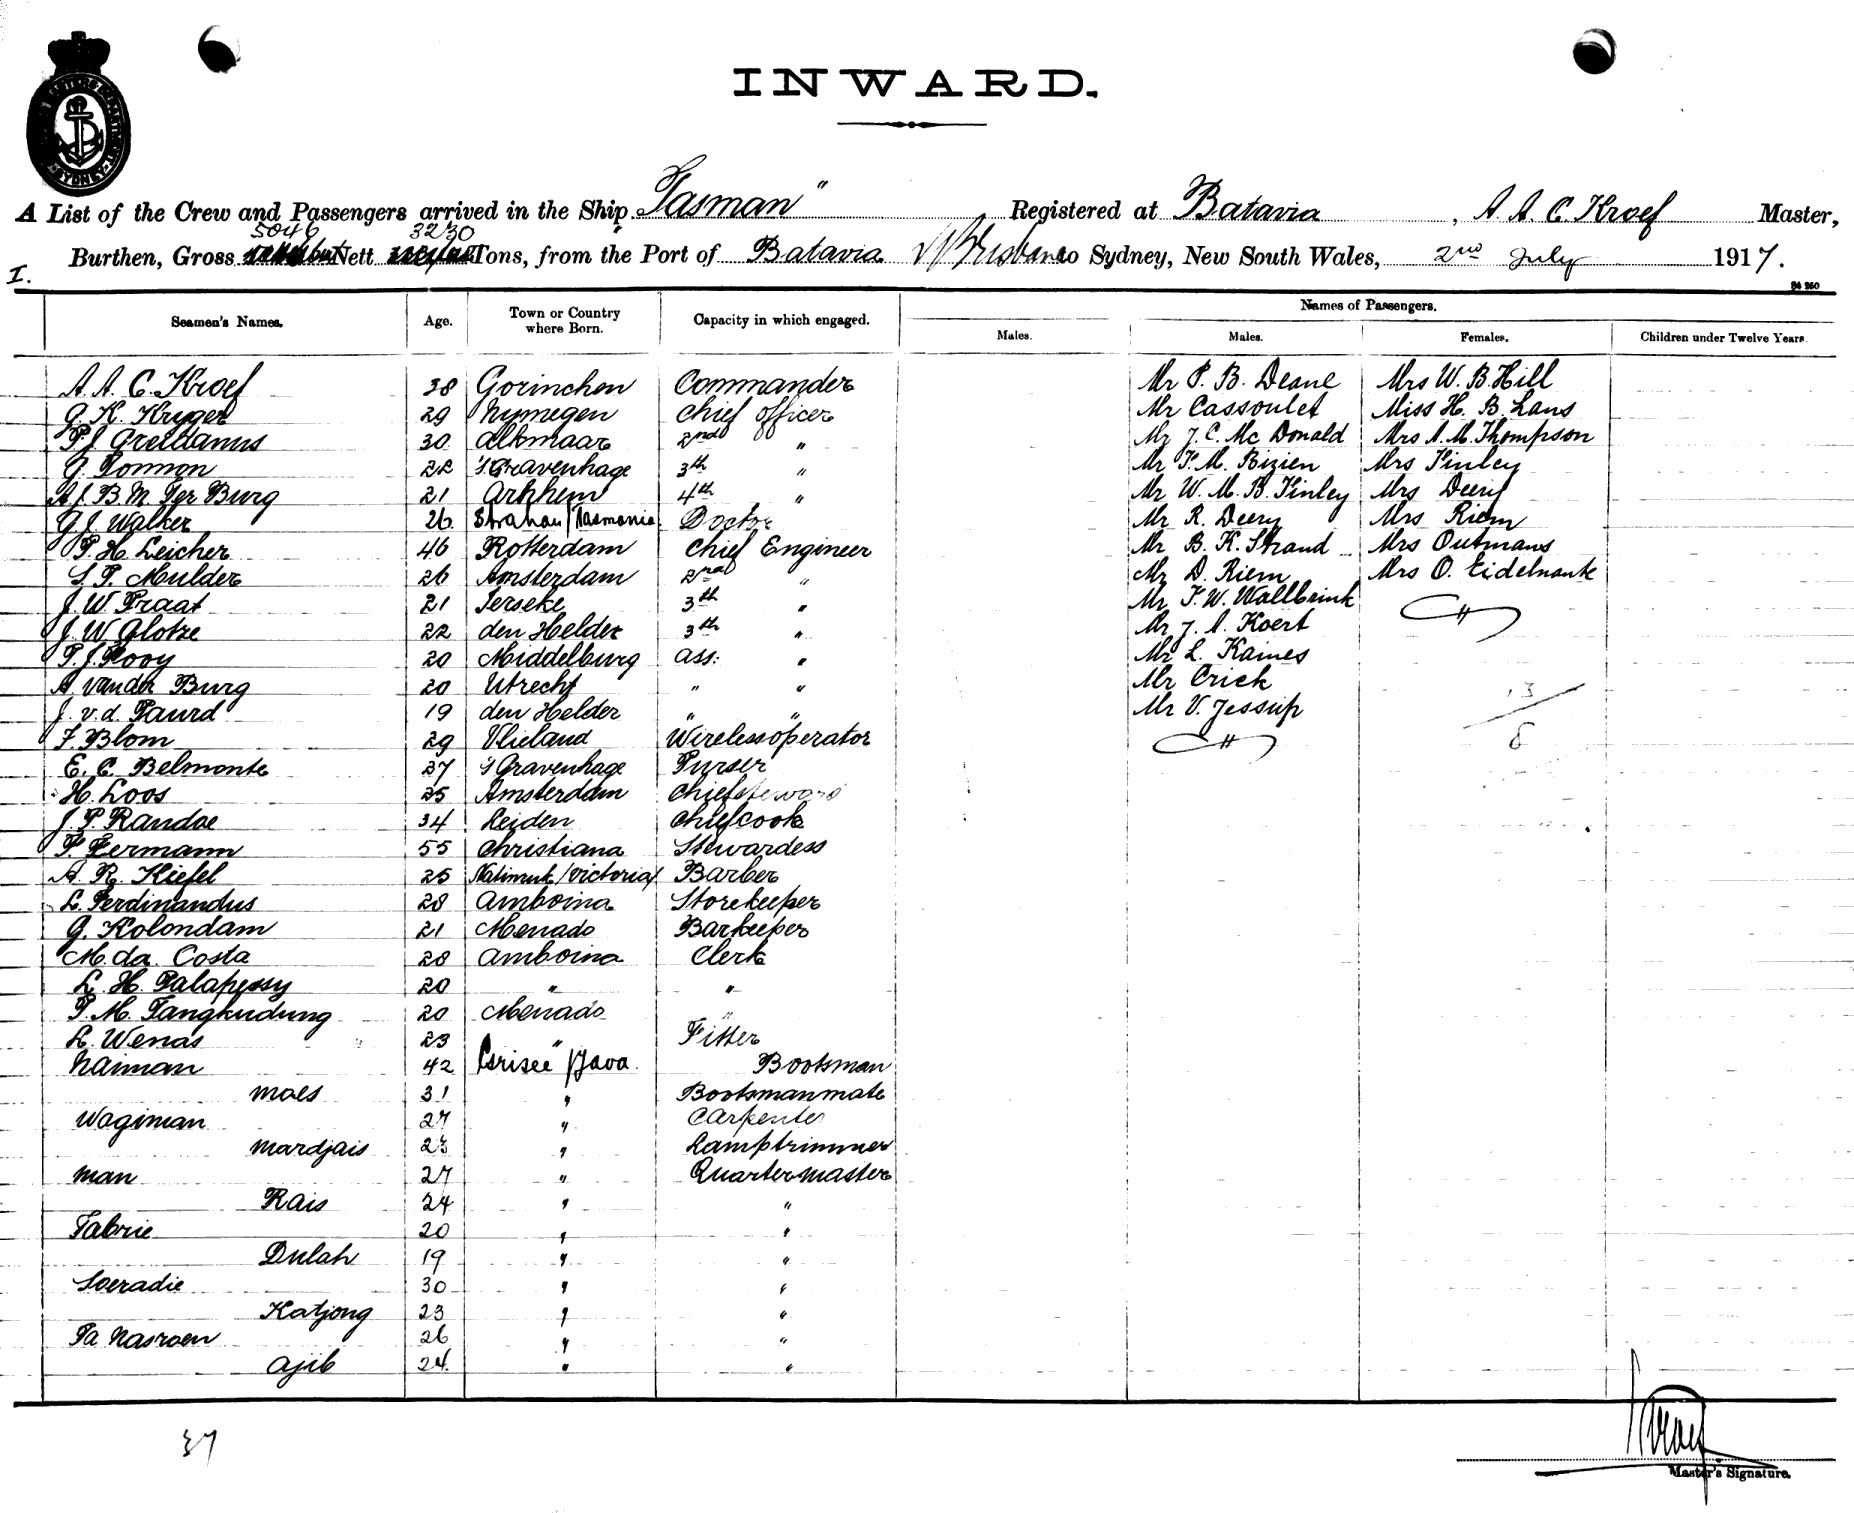 INWARD.
A List of the Crew and Passengers arrived in the Ship "Tasman" Registered at Batavia, A A. C. Kroef Master,
5046 3230
Burthen, Gross Nett Tons, from the Port of Batavia v/ Brisbane to Sydney, New South Wales, 2nd July 1917.
I.
Names of Passengers.
Seamen's Names. Age. Town or Country where Born. Capacity in which engaged. Males. Males. Females. Children under Twelve Years
A. A. C. Kroef 38 Gorinchen Commander Mr P. B. Deane Mrs W. B. Hill
G. K. Kryger 29 Nymegen Chief officer Mr Cassoulet Miss H. B. Laus
P. J. Greidanus 30 Alkmaar 2nd " Mr J. C. Mc Donald Mrs A. M. Thompson
G. Ponnon 22 's Gravenhage 3th " Mr F. M. Bizien Mrs Finley
A. J. B. M. Ter Burg 21 Arhhem 4th " Mr W. M. B. Finley Mrs Deery
G J. Walker 26 Strahan/Tasmania Doctor Mr R. Deery Mrs Riem
P. H. Leicher 46 Rotterdam Chief Engineer Mr B. K. Strand Mrs Outmans
S. P. Mulder 26 Amsterdam 2nd " Mr D. Riem Mrs O. Eidelnank
J. W Praat 21 Ierseke 3th " Mr F. W. Wallbrink
J. W Glotze 22 den Helder 3th " Mr J. A. Koert
P. J. Rooy 20 Middelburg ass: " Mr L. Kames
A. van der Burg 20 Utrecht " " Mr Crick
J. v. d. Paurd 19 den Helder " " Mr V. Jessup
F. Blom 29 Vlieland Wirelessoperator
E. C. Belmonte 27 's Gravenhage Purser
H. Loos 25 Amsterdam Chiefsteward
J. P. Randoe 34 Leiden Chiefcook
P Fermann 55 Christiana Stewardess
A. R. Kiefel 25 Natimuk/Victoria/ Barber
L. Ferdinandus 28 Amboina Storekeeper
G. Kolondam 21 Menado Barkeeper
M. da Costa 28 Amboina Clerk
L. H. Palapessy 20 " "
P. M. Tangkudung 20 Menado "
L. Wenas 23 " Fitter
Naiman 42 Grisee/Java Bootsman
Moes 31 " Bootsmanmate
Wagiman 27 " Carpenter
Mardjais 23 " Lamptrimmer
Man 27 " Quartermaster
Rais 24 " "
Tabrie 20 " "
Dulah 19 " "
Soeradie 30 " "
Katjong 23 " "
Pa Nasroen 26 " "
Ajib 24 " "
13
8
37
Kroef
Master's Signature.